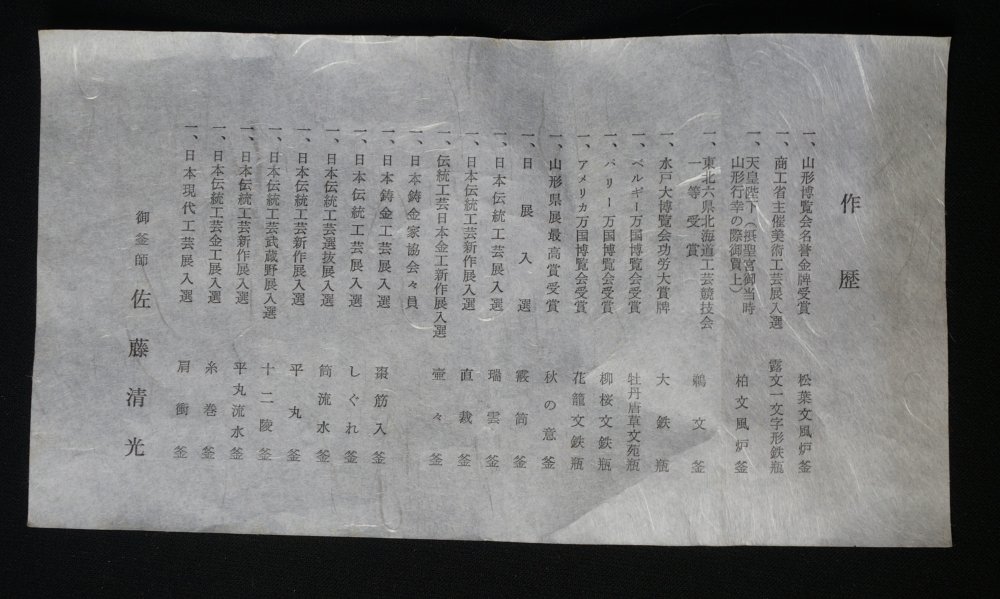 作歴
一、山形博覧会名誉金牌受賞 松葉文風炉釜
一、商工省主催美術工芸展入選 露文一文字形鉄瓶
一、天皇陛下(摂聖宮御当時
山形行幸の際御買上) 柏文風炉釜
一、東北六県北海道工芸競技会
一等受賞 鶴文釜
一、水戸大博覧会功労大賞牌 大鉄瓶
一、ベルギー万国博覧会受賞 牡丹唐草文宛瓶
一、パリー万国博覧会受賞 柳桜文鉄瓶
一、アメリカ万国博覧会受賞 花籠文鉄瓶
一、山形県展最高賞受賞 秋の意釜
一、日展入選 霰筒釜
一、日本伝統工芸展入選 瑞雲釜
一、日本伝統工芸新作展入選 直裁釜
一、伝統工芸日本金工新作展入選 壷々釜
一、日本鋳金家協会々員
一、日本鋳金工芸展入選 棗筋入釜
一、日本伝統工芸展入選 しぐれ釜
一、日本伝統工芸選抜展入選 筒流水釜
一、日本伝統工芸新作展入選 平丸釜
一、日本伝統工芸武蔵野展入選 十二陵釜
一、日本伝統工芸新作展入選 平丸流水釜
一、日本伝統工芸金工展入選 糸巻釜
一、日本現代工芸展入選 肩衝釜
御釜師 佐藤清光